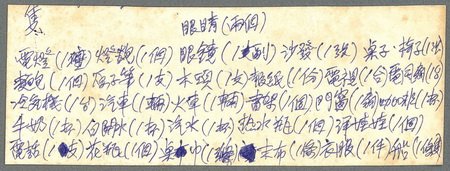 隻
眼睛(兩個)
電燈(1) 燈(1個) 眼鏡(1副) 沙發(1張) 桌子.椅子(1)
(1個) 原子筆(1支) 木頭(1支) 報紙(1份) 電視(1台)
冷氣機(1台) 汽車(1輛) 火車(1輛) (1個) 門窗(1扇) 咖啡(1杯)
牛奶(1杯) 白開水(1杯) 汽水(1杯) 熱水瓶(1個) 洋娃娃(1個)
電話(1支) 花瓶(1個) 桌巾(1) 毛巾(1條) 衣服(1件) 船(1